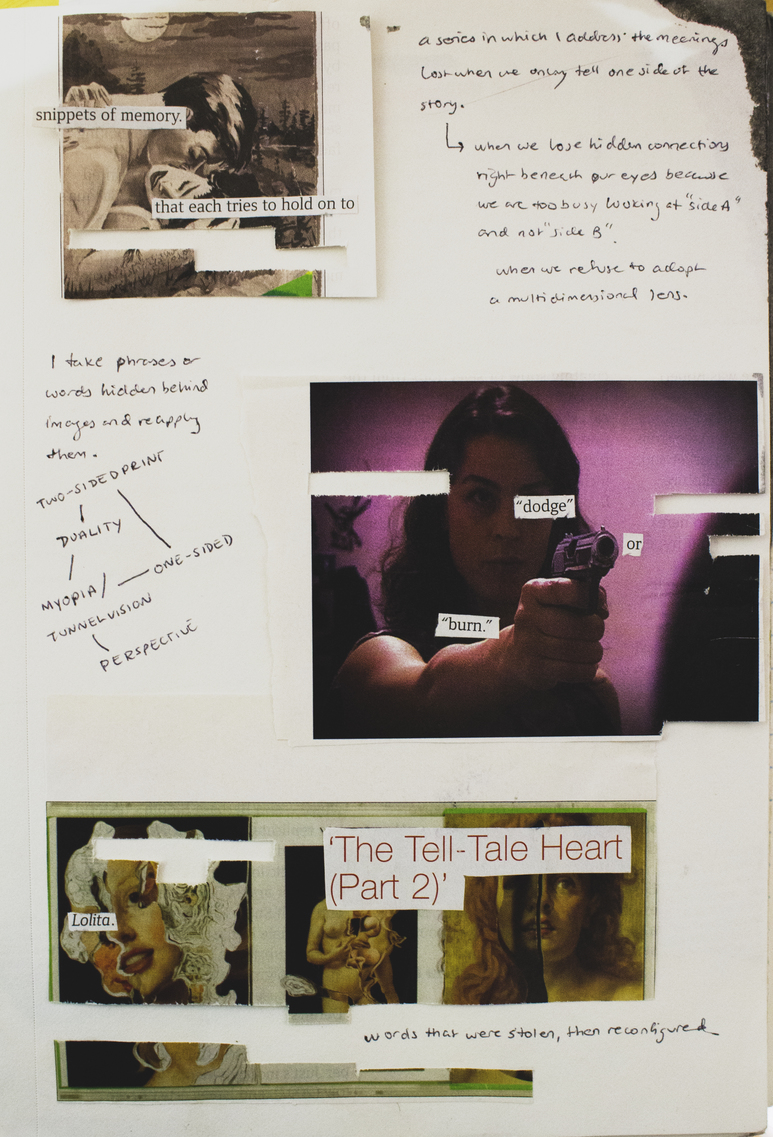 snippets of memory.
that each tries to hold on to
a series in which I address the meanings
lost when we only tell one side of the
story.
when we lose hidden connections
right beneath our eyes because
we are too busy looking at "side A"
and not "side B".
when we refuse to adopt
a multidimensional lens.
I take phrases or
words hidden behind
images and reapply
them.
TWO-SIDED PRINT
DUALITY
ONE-SIDED
MYOPIA/
TUNNEL VISION
PERSPECTIVE
"dodge"
or
"burn."
'The Tell-Tale Heart
(Part 2)'
Lolita.
words that were stolen, then reconfigured